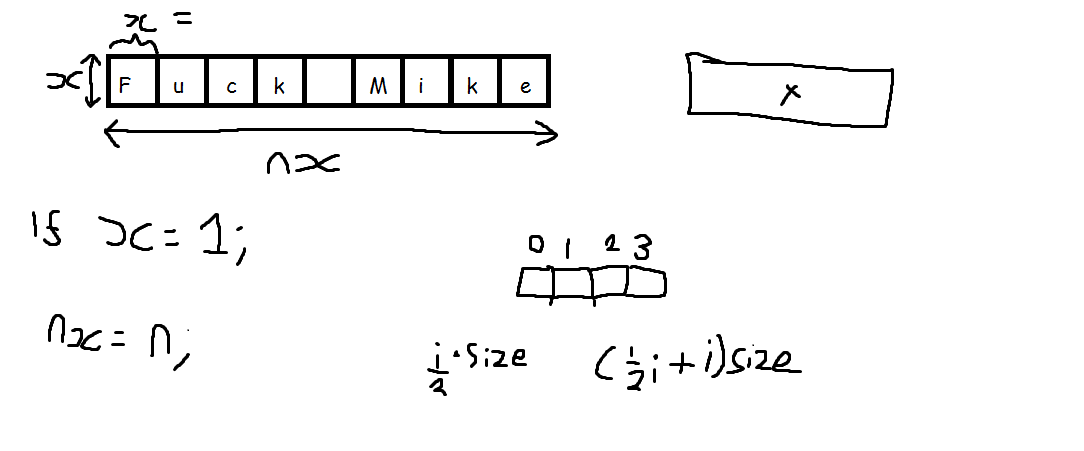 x =
x
F u c k M i k e
nx
x
If x = 1;
0 1 2 3
nx = n;
i/2 · size (1/2 i + i) size